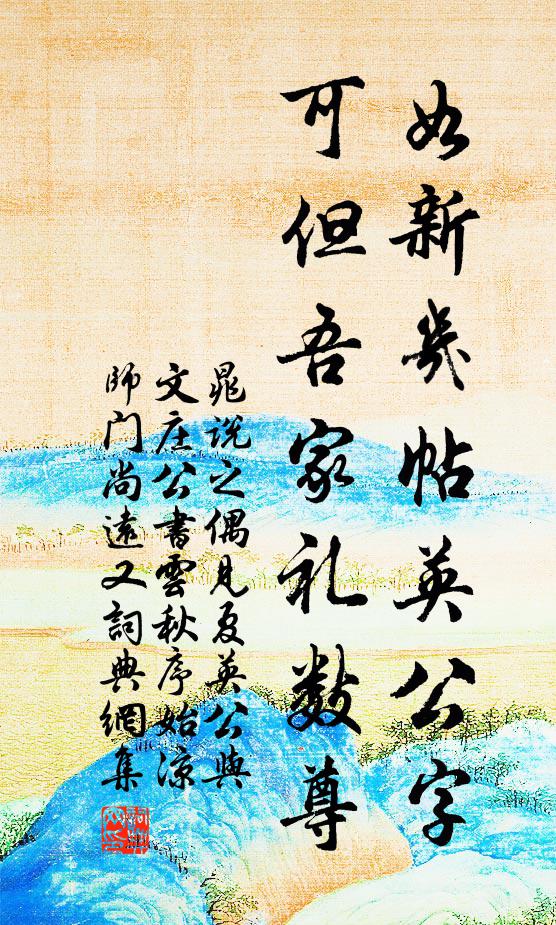 如新幾帖英公字
可但吾家礼数尊
晁说之偶见夏英公與
文庄公書雲秋序始凉
師门尚遠又詞典網集